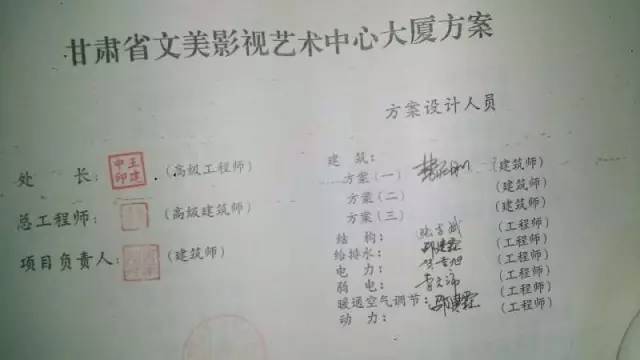 甘肃省文美影视艺术中心大厦方案
方案设计人员
处 长： (高级工程师)
总工程师： (高级建筑师)
项目负责人： (建筑师)
建 筑：
方案(一) (建筑师)
方案(二) (建筑师)
方案(三) (建筑师)
结 构： (工程师)
给排水： (工程师)
电 力： (工程师)
弱 电： (工程师)
暖通空气调节： (工程师)
动 力：